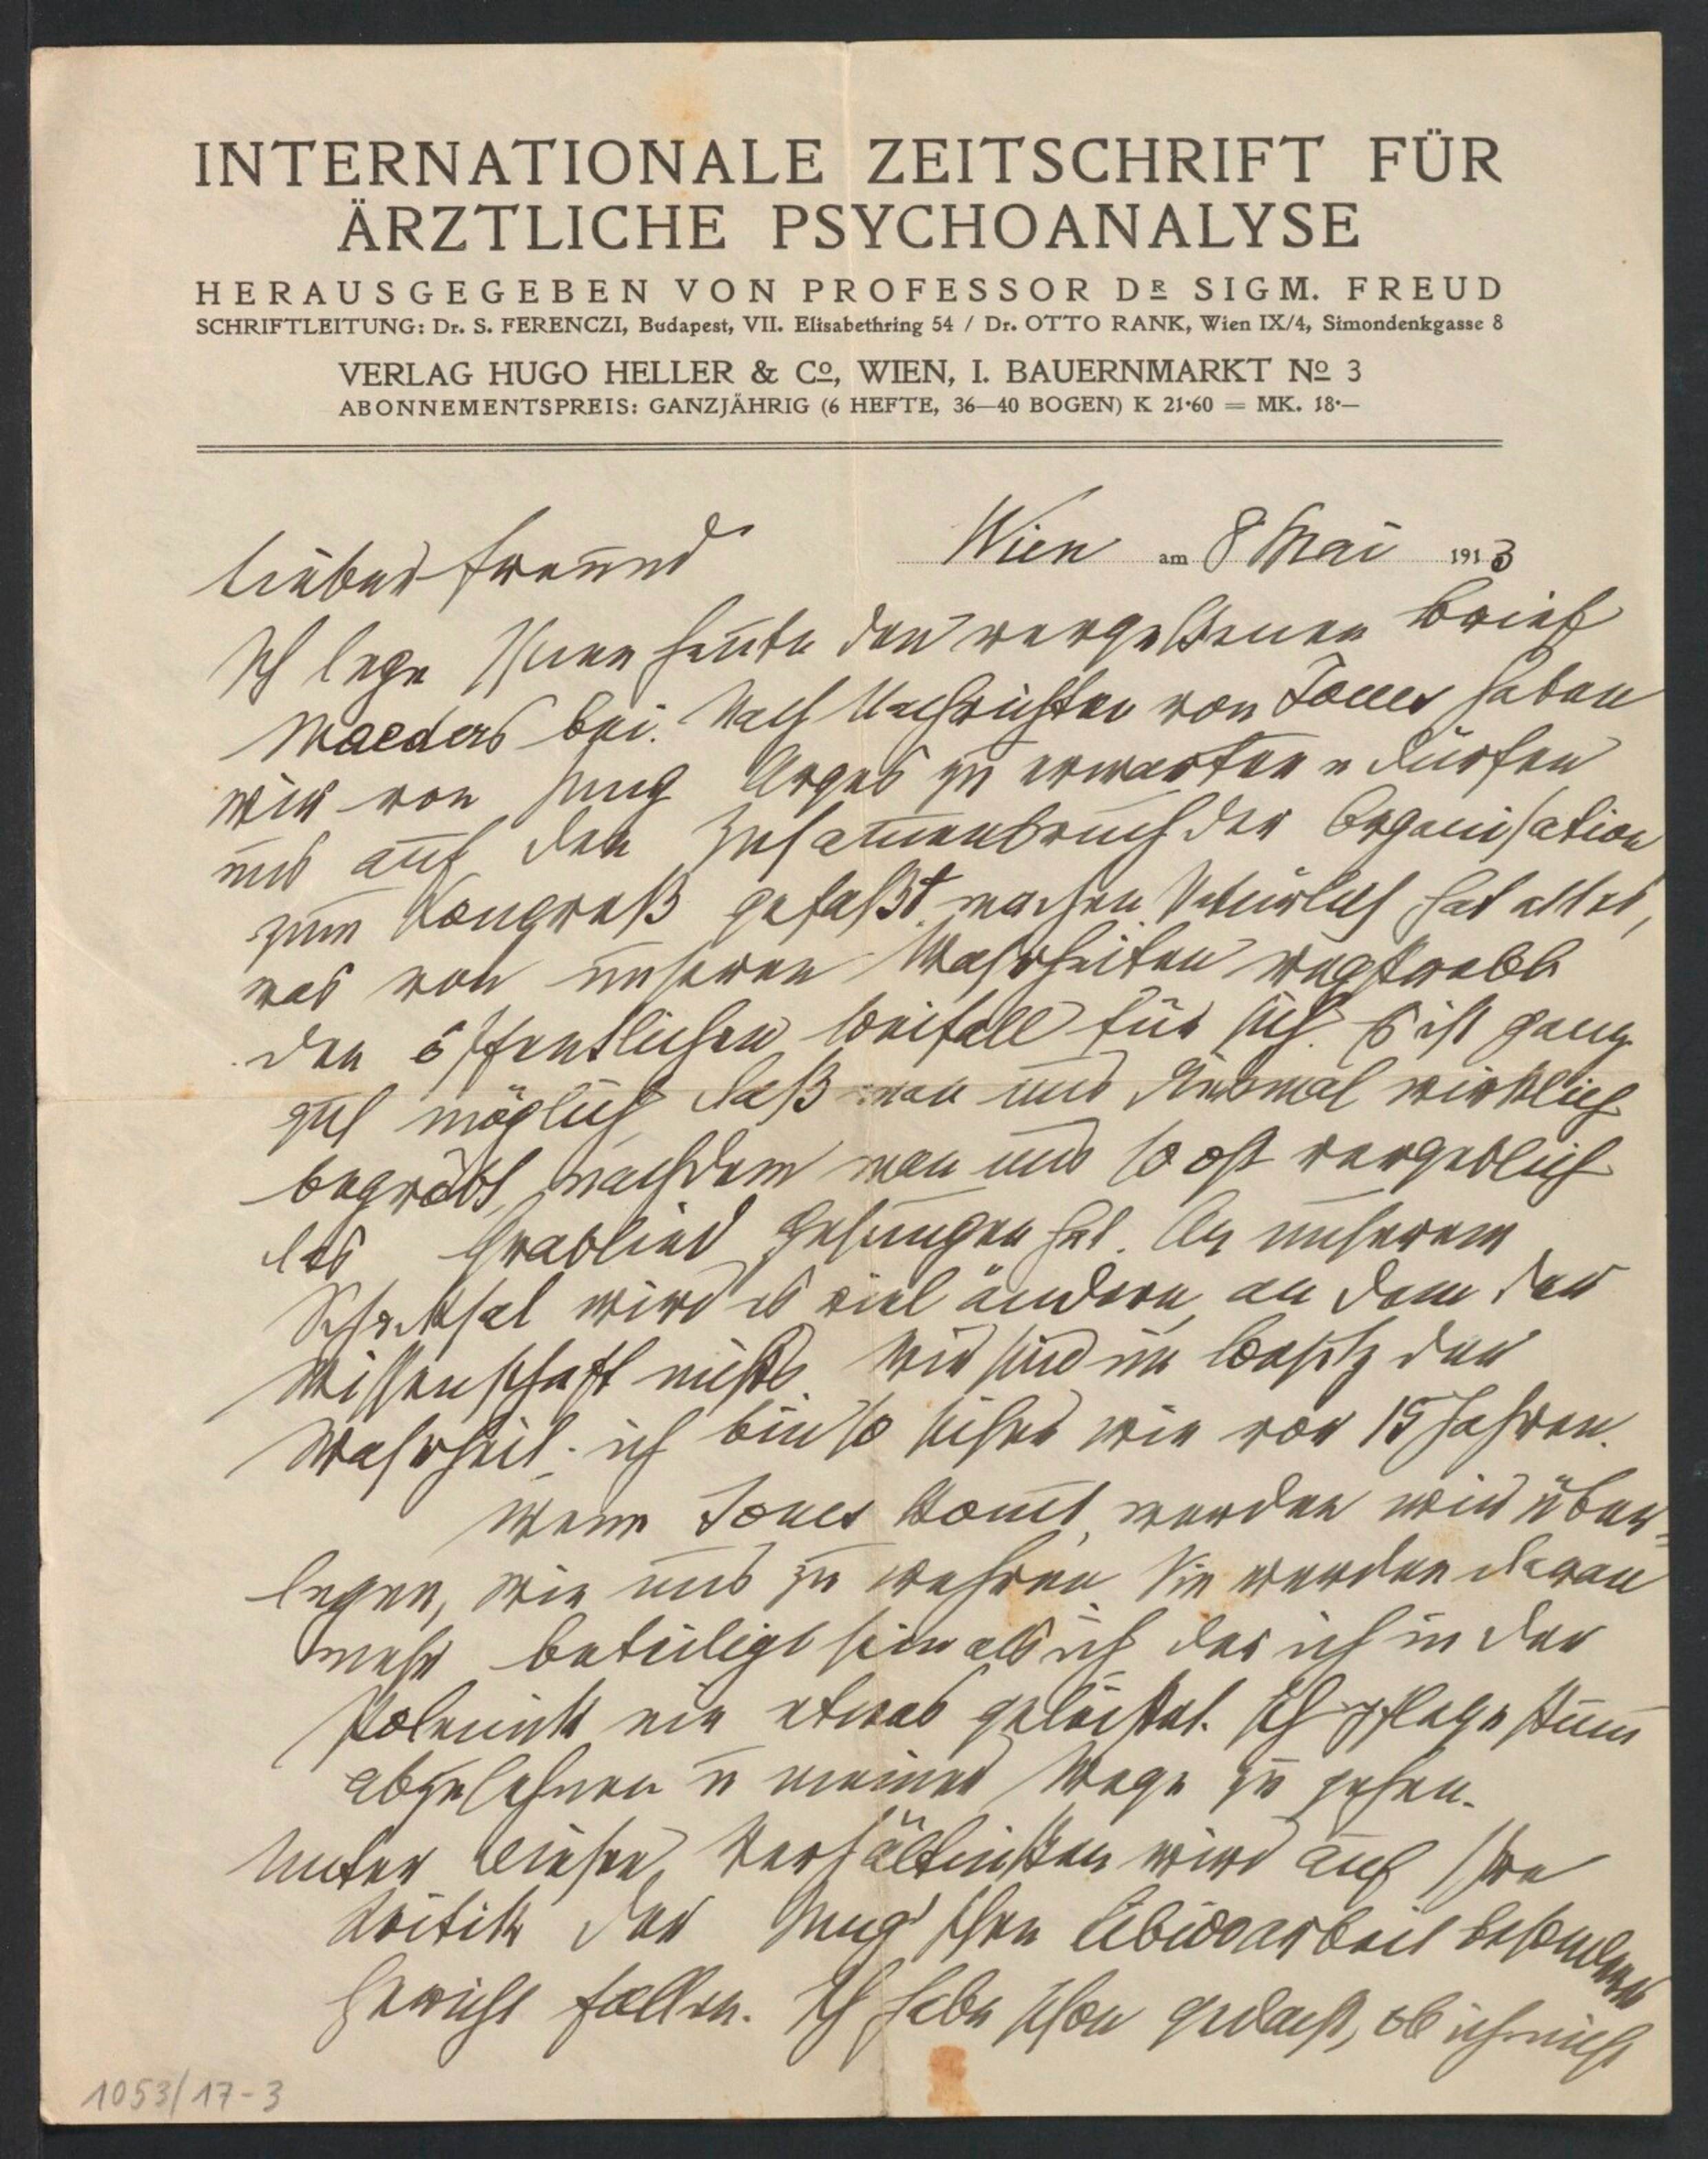 INTERNATIONALE ZEITSCHRIFT FÜR
ÄRZTLICHE PSYCHOANALYSE
HERAUSGEGEBEN VON PROFESSOR DR SIGM. FREUD
SCHRIFTLEITUNG: Dr. S. FERENCZI, Budapest, VII. Elisabethring 54 / Dr. OTTO RANK, Wien IX/4, Simondenkgasse 8
VERLAG HUGO HELLER & Co, WIEN, I. BAUERNMARKT No 3
ABONNEMENTSPREIS: GANZJÄHRIG (6 HEFTE, 36—40 BOGEN) K 21·60 = MK. 18·—
Wien am 8 Mai 1913
Lieber Freund
Ich lege Ihnen heute den vergessenen Brief
Maeders bei. Nach Nachrichten von Jones haben
wir von Jung Arges zu erwarten u dürfen
uns auf den Zusam̄enbruch der Organisation
zum Kongreß gefaßt machen. Natürlich hat alles,
was von unseren Wahrheiten wegstrebt
den öffentlichen Beifall für sich. Es ist ganz
gut möglich, daß man uns diesmal wirklich
begräbt, nachdem man uns so oft vergeblich
das Grablied gesungen hat. An unserem
Schicksal wird es viel ändern, an dem der
Wissenschaft nichts. Wir sind im Besitz der
Wahrheit; ich bin so sicher wie vor 15 Jahren.
Wenn Jones kom̄t, werden wir über=
legen, wie uns zu wehren. Sie werden daran
mehr beteiligt sein als ich, der ich in der
Polemik nie etwas geleistet. Ich pflege stum̄
abzulehnen u meiner Wege zu gehen.
Unter diesen Verhältnissen wird auf Ihre
Kritik der Jung'schen Libidoarbeit besonderes
Gewicht fallen. Ich habe schon gedacht, ob ich nicht
1053/17-3